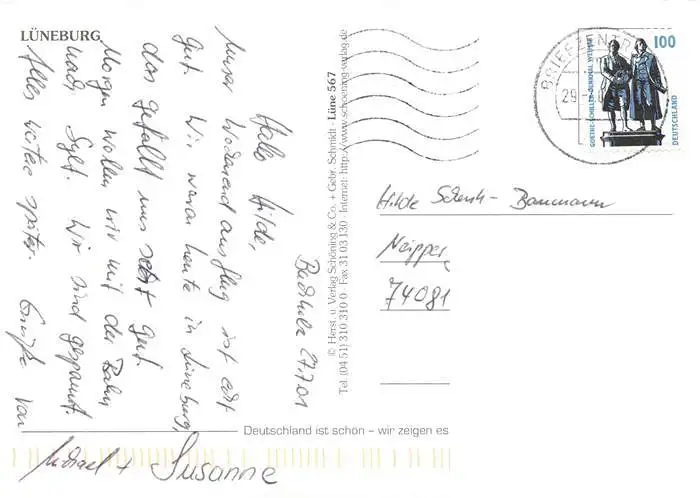 LÜNEBURG
Buchholz 27.7.01
Hallo Hilde,
unser Wochenendausflug ist echt
gut. Wir waren heute in Lüneburg,
das gefällt uns sehr gut.
Morgen wollen wir mit der Bahn
nach Sylt. Wir sind gespannt.
Alles weitere später. Grüße von
Michael + Susanne
© Herst. u. Verlag Schöning & Co. + Gebr. Schmidt · Lüne 567
Tel. (04 51) 310 310 0 · Fax 31 03 130 · Internet: http://www.schoening-verlag.de
Deutschland ist schön – wir zeigen es
BRIEFZENTR
29
100
GOETHE-SCHILLER-DENKMAL WEIMAR
DEUTSCHLAND
Hilde Schenk-Baumann
Neipperg
74081